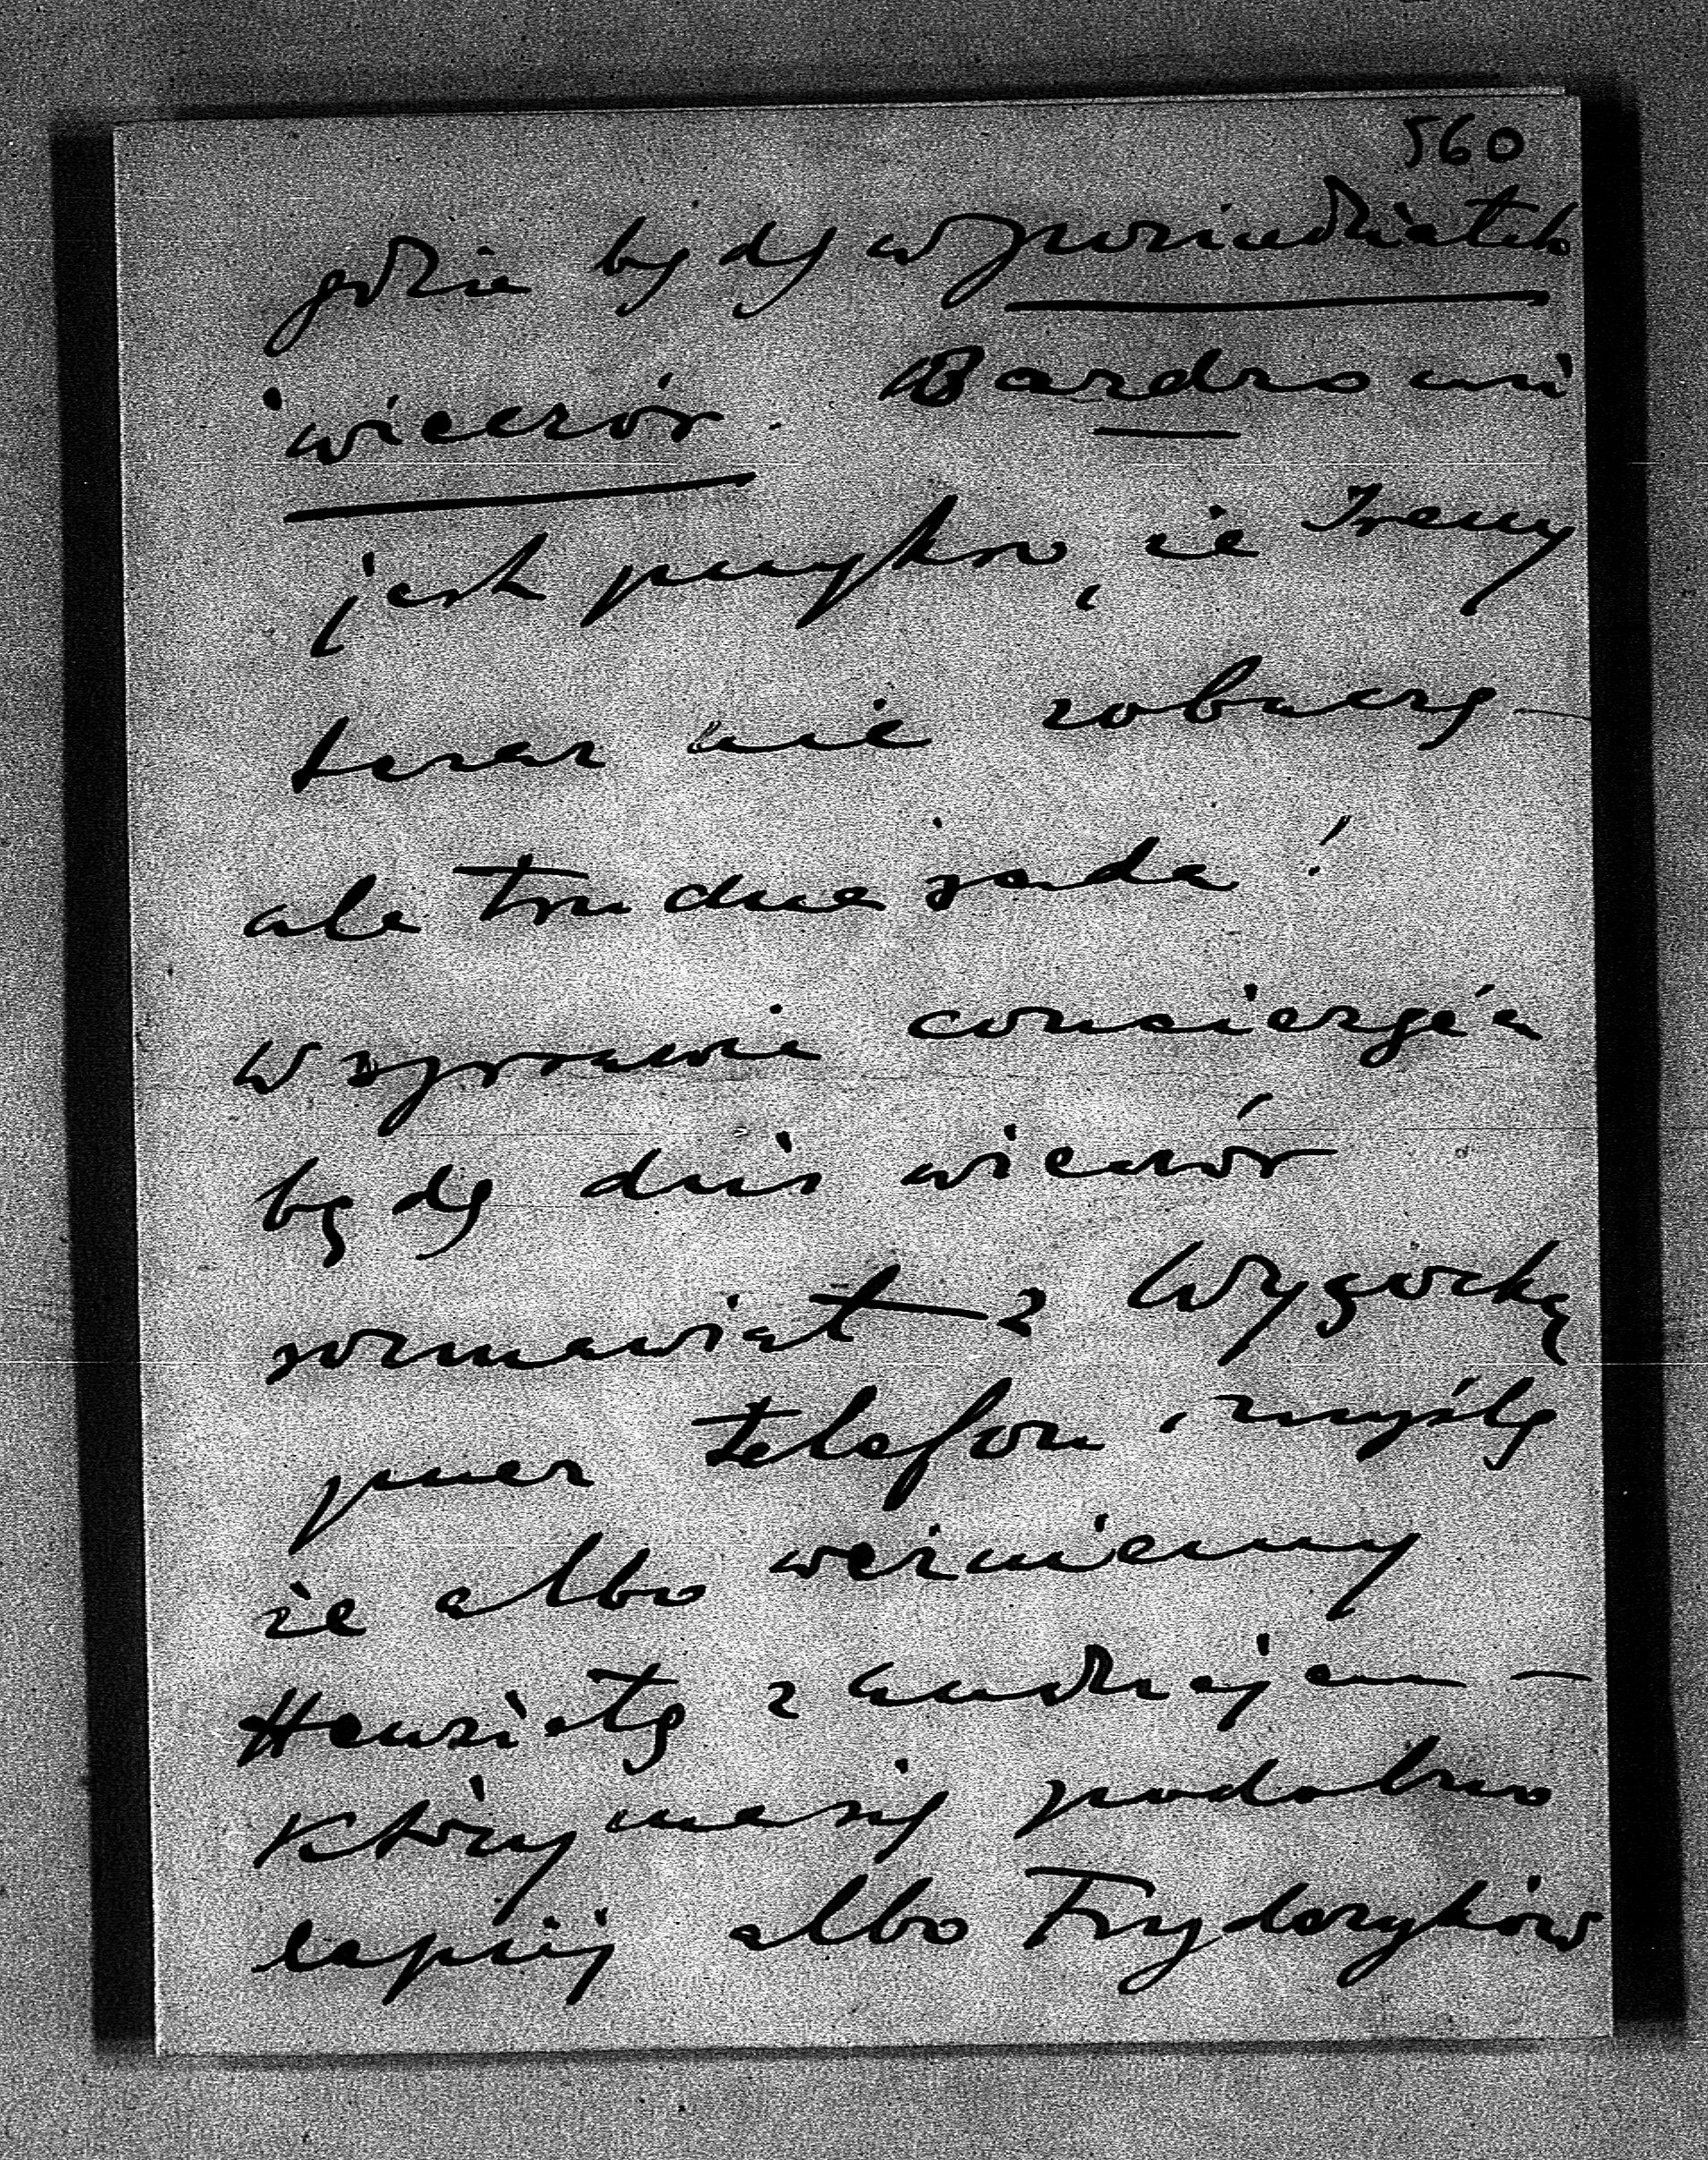 560
gdzie będę w poniedziałek
wieczór. Bardzo mi
jest przykro, że Ireny
teraz nie zobaczę –
ale trudna rada!
W sprawie concierge'a
będę dziś wieczór
rozmawiał z Wysocką
przez telefon, myślę
że albo weźmiemy
Henrietę z Andrzejem –
który ma się podobno
lepiej albo Fryderyków